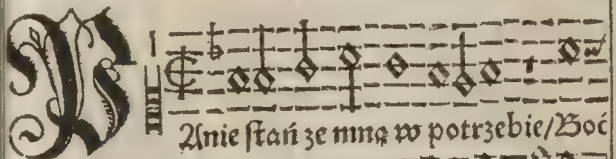 PAnie ſtań ze mną w potrzebie/Boć